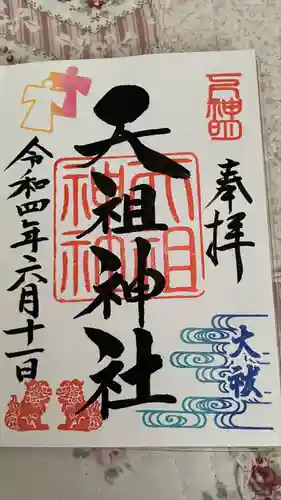 奉拝
天祖神社
天祖神社
大祓
令和四年六月十一日